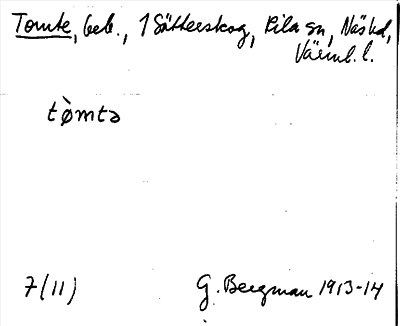 Tomte, beb., 1 Sätterskog, Sila sn, Näs hd,
Värml. l.
tòmtə
7(11)
G. Bergman 1913-14